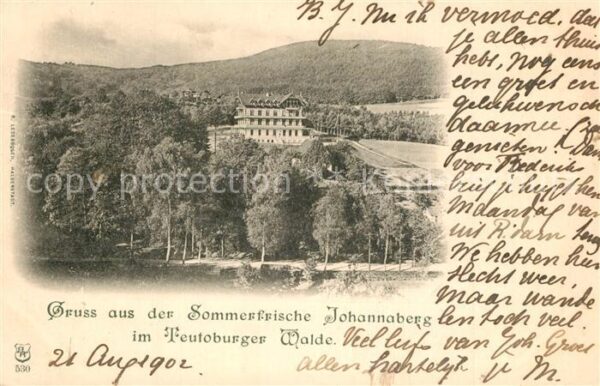 B. J. Nu ik vermoed, dat
je allen thuis
hebt, nog eens
een groet en
gelukwensch
daarmee.
genieten!
voor
Maandag van
uit R.dam
We hebben hier
slecht weer,
maar wande
len toch veel.
Veel liefs van Joh. Groet
allen hartelijk je M.
Gruss aus der Sommerfrische Johannaberg
im Teutoburger Walde.
21 Aug 1902
530
copyright